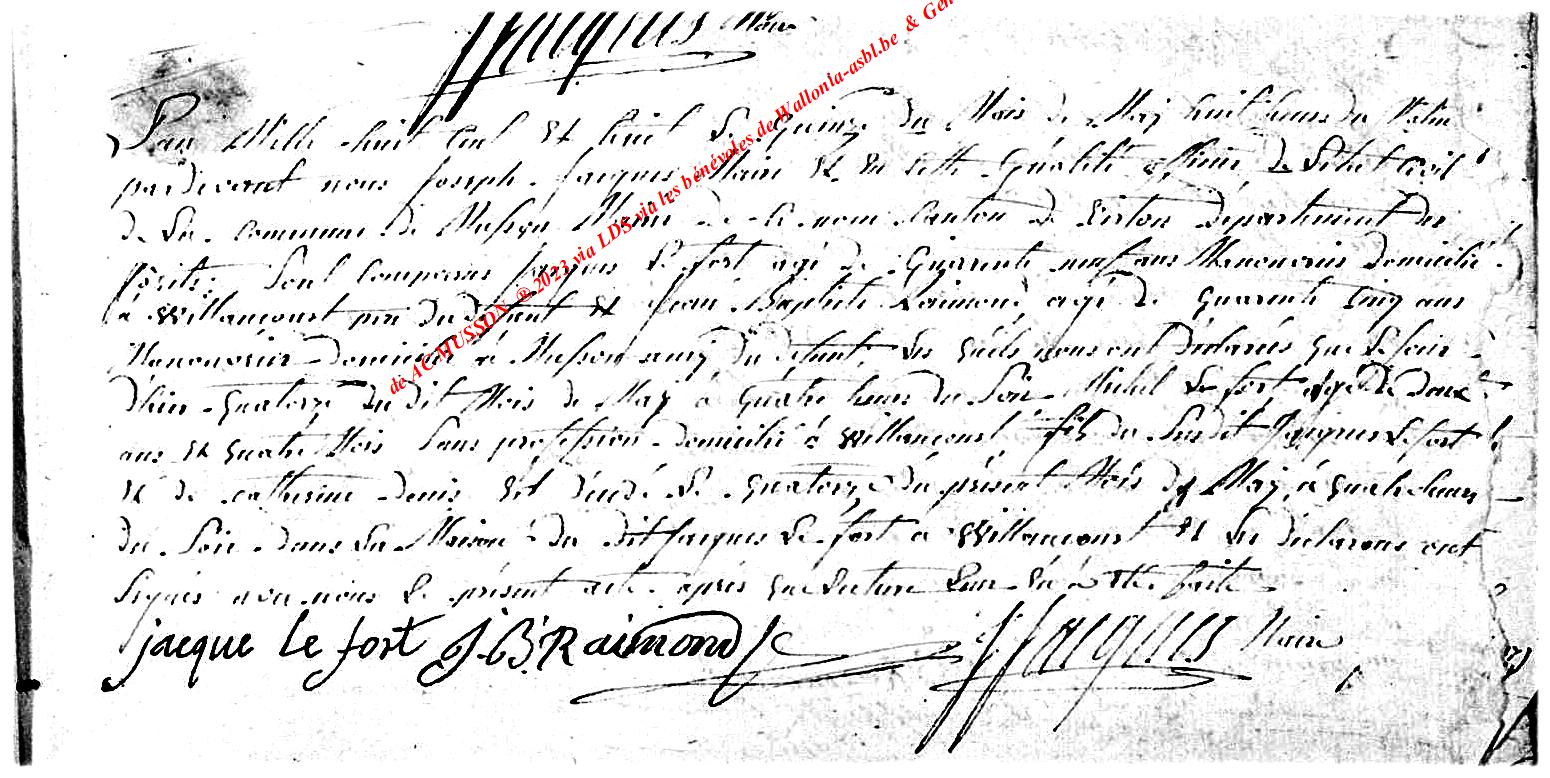 JJacques Maire
L'an Mille huit Cent Et huit Le Quinze du Mois de May huit heures du Matin
pardevant nous Joseph Jacques Maire Et En Cette Qualité officier de L'Etat Civil
de La Commune de Musson Mairie de Ce nom Canton de Virton Département des
forêts. Sont Comparus Jacques Le fort agé de Quarente neuf ans Manouvrier domicilié
à Willancourt pere du défunt Et Jean Baptiste Raimond agé de Quarente Cinq ans
Manouvrier domicilié à Musson amy du défunt, Les Quels nous ont Déclarés Que Le jour
d'hier Quatorze du dit Mois de May à Quatre heures du Soir Michel Le fort agé de deux
ans Et Quatre Mois Sans profession domicilié à Willancourt fils du Susdit Jacques Le fort
Et de Catherine denis Est décédé Le Quatorze du présent Mois de May à Quatre heures
du Soir dans La Maison du dit Jacques Le fort à Willancourt Et Les déclarans ont
Signés avec nous Le présent acte après que Lecture Leur En a Eté faite
jacque le fort J.B. Raimond JJacques Maire
de AC MUSSON ® 2023 via LDS via les bénévoles de Wallonia-asbl.be & Gen